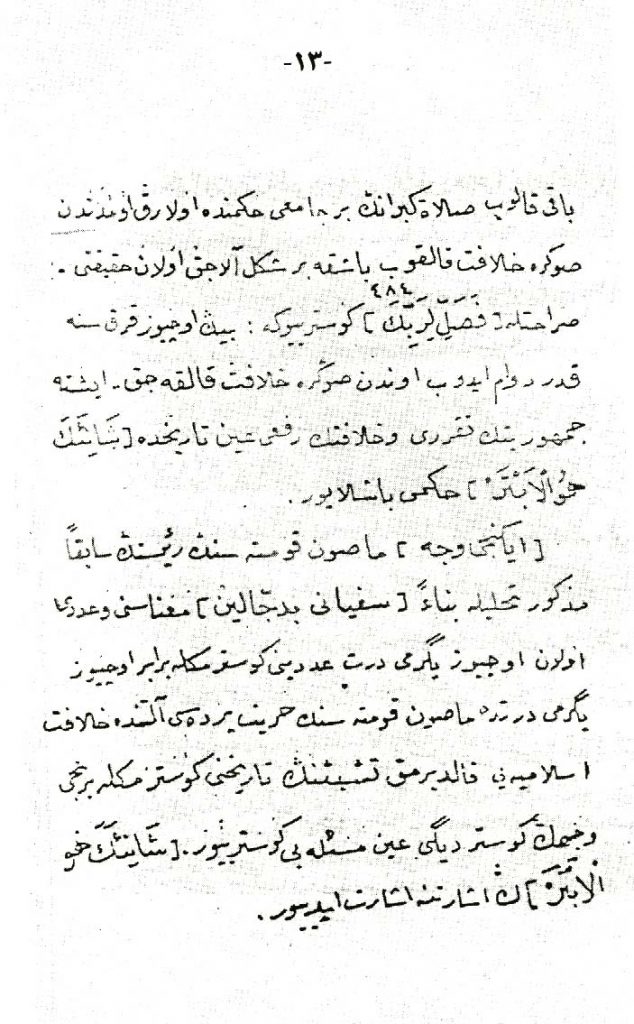 -١٣-
باقى قالوب صلاة كبرانڭ بر جامعى حكمنده اولارق اوندندن
صوكره خلافت قالقوب باشقه بر شكل آلاجق اولان حقيقتى .
٤٨٤
صراحتله [فَصَلِّ لِرَبِّكَ] كوسترييوركه : بيڭ اوچيوز قرق سنه
قدر دوام ايدوب اوندن صوكره خلافت قالقه جق . ايشته
جمهوريتڭ تقررى وخلافتڭ رفعى عين تاريخده [شَانِئَكَ
هُوَ الْاَبْتَرُ] حكمى باشلايور .
[ايكنجى وجه] ماصون قومته سنڭ رئيسنڭ سابقاً
مذكور تحليله بناءً [سفيانى بدجّالين] معناسنى وعددى
اولان اوچيوز يگرمى درت عددينى كوسترمكله برابر اوچيوز
يگرمى درتده ماصون قومته سنڭ حريت پرده سى آلتنده خلافت
اسلاميه يى قالديرمق تشبثنڭ تاريخنى كوسترمكله برنجى
وجهڭ كوسترديگى عين مسئله يى كوستريیور . [شَانِئَكَ هُوَ
الْاَبْتَرُ] ڭ اشارتنه اشارت ايدييور .